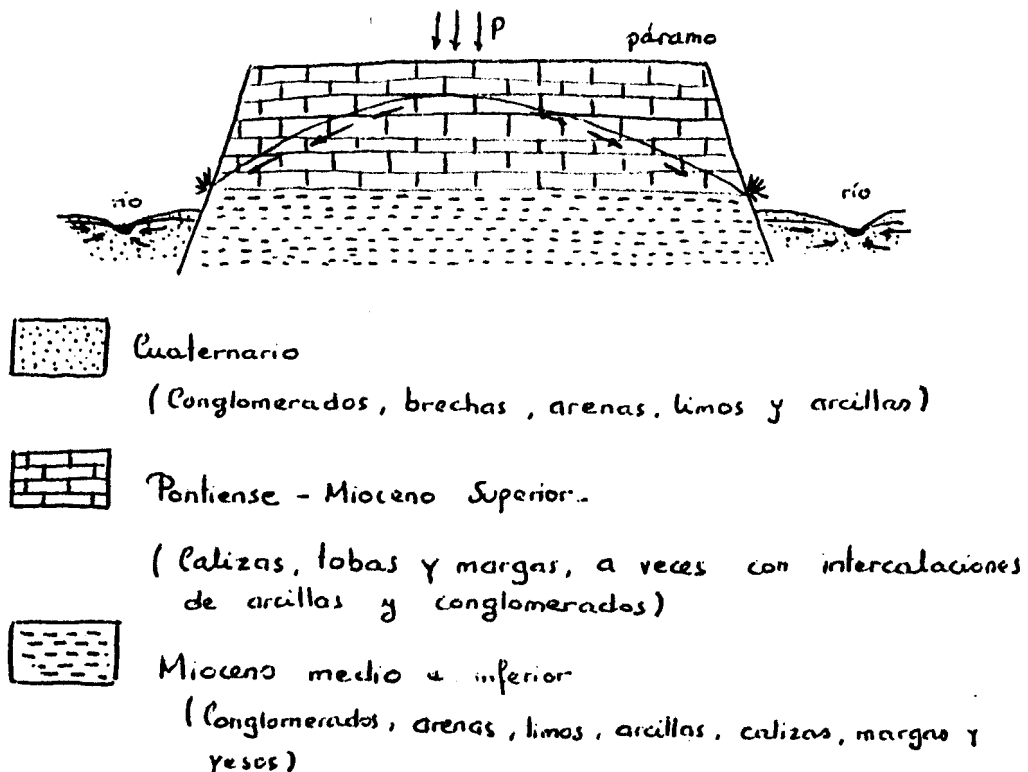 P
páramo
río
río
Cuaternario
(Conglomerados, brechas, arenas, limos y arcillas)
Pontiense - Mioceno Superior..
(Calizas, tobas y margas, a veces con intercalaciones
de arcillas y conglomerados)
Mioceno medio e inferior
(Conglomerados, arenas, limos, arcillas, calizas, margas y
yesos)